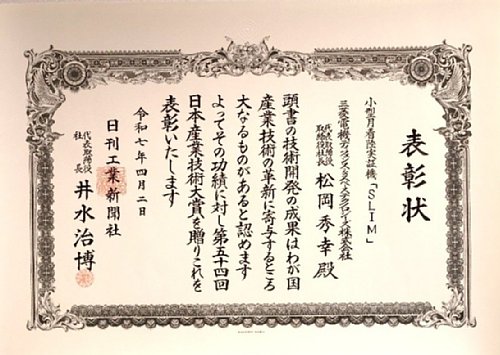 表彰状
小型月着陸実証機「SLIM」
三菱電機ディフェンス&スペーステクノロジーズ株式会社
代表取締役
取締役社長
松岡秀幸殿
頭書の技術開発の成果はわが国
産業技術の革新に寄与するところ
大なるものがあると認めます
よってその功績に対し第五十四回
日本産業技術大賞を贈りこれを
表彰いたします
令和七年四月二日
日刊工業新聞社
代表取締役
社長
井水治博